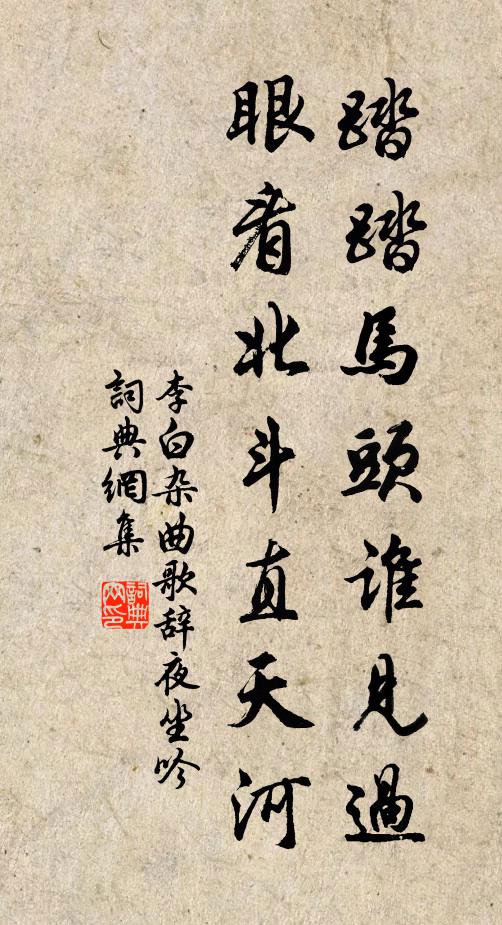 踏踏馬頭誰見過
眼看北斗直天河
李白杂曲歌辞夜坐吟
詞典網集
詞典网印